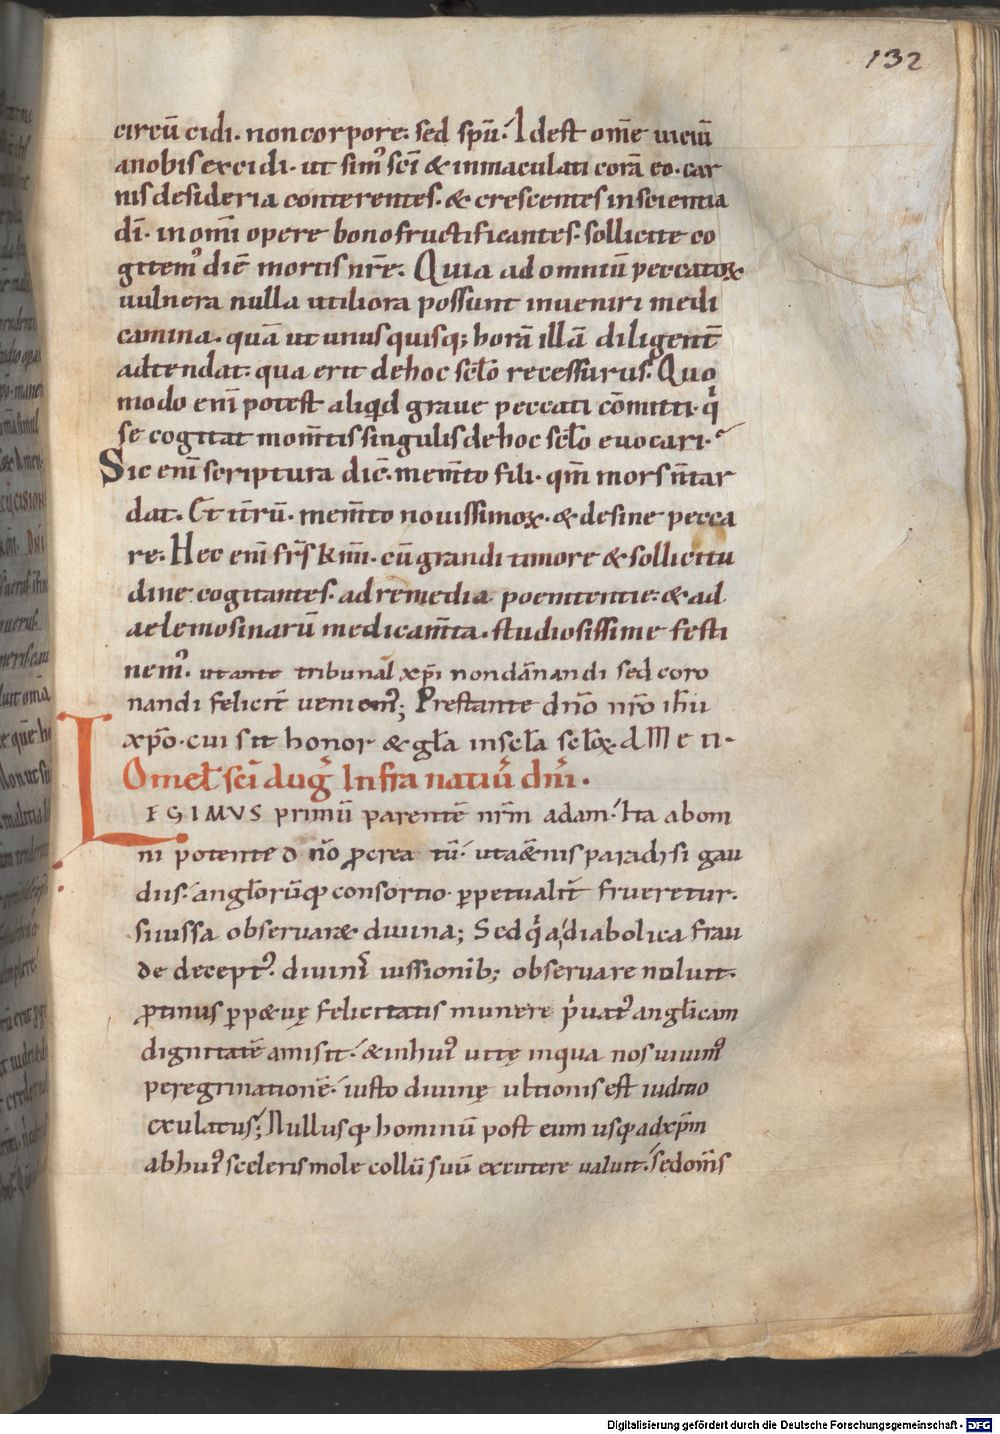 132
circū cidi. non corpore. sed spū. Idest om̄e uiciū
anobis excidi. ut sim᾿ sc̄i & inmaculati corā eo. car
nis desideria conterentes. & crescentes inscientia
dī. in om̄i opere bono fructificantes. sollicite co
gitem᾿ diē mortis nr̄e. Quia ad omniū peccatoꝝ
uulnera nulla utiliora possunt inueniri medi
camina. quā ut unusquisq; horā illā diligent̄
adtendat. qua erit dehoc sc̄lo recessurus. Quo
modo eni᷒ potest aliqͥd graue peccati cōmitti. qͥ
se cogitat mom̄tis singulis dehoc sc̄lo euocari.
Sic enī scriptura dic̄. mem̄to fili. qm̄ mors n̄ tar
dat. Et it̄rū. mem̄to nouissimoꝝ. & desine pecca
re. Hec enī fr̄s km̄i. cū grandi timore & sollicitu
dine cogitantes. ad remedia poenitentie. & ad
aelemosinarū medicam̄ta. studiosissime festi
nem᾿. ut ante tribunal xp̄i non dān̄andi sed coro
nandi felicit̄ ueniem᾿; Prestante dn̄o nr̄o ih̄u
xp̄o. cui sit honor & gl̄a insc̄la sc̄loꝝ. a M e n.
Omel̄ sc̄i auḡ Infra natiū dn̄i.
LEGIMVS primū parentē nr̄m adam. Ita abom
ni potente d n̄o ꝓcrea tū. uta&̄nis paradysi gau
diis. angl̄orūqꝫ consortio. ꝑpetualit̄ frueretur.
siiussa obseruar& diuina; Sed qͥa diabolica frau
de decept᾿. diuinis iussionib; obseruare noluit.
ꝓtinus ꝑp&uę felicitatis munere pͥuat᾿ angl̄icam
dignitatē amisit. & inhui᾿ uitę inqua nos uiuim᾿
peregrinationē. iusto diuinę ultionis est iuditio
exulatus; Nullusqꝫ hominū post eum usqꝫ adxp̄m
abhui᾿ sceleris mole collū suū excutere ualuit. sedom̄s
Digitalisierung gefördert durch die Deutsche Forschungsgemeinschaft - DFG